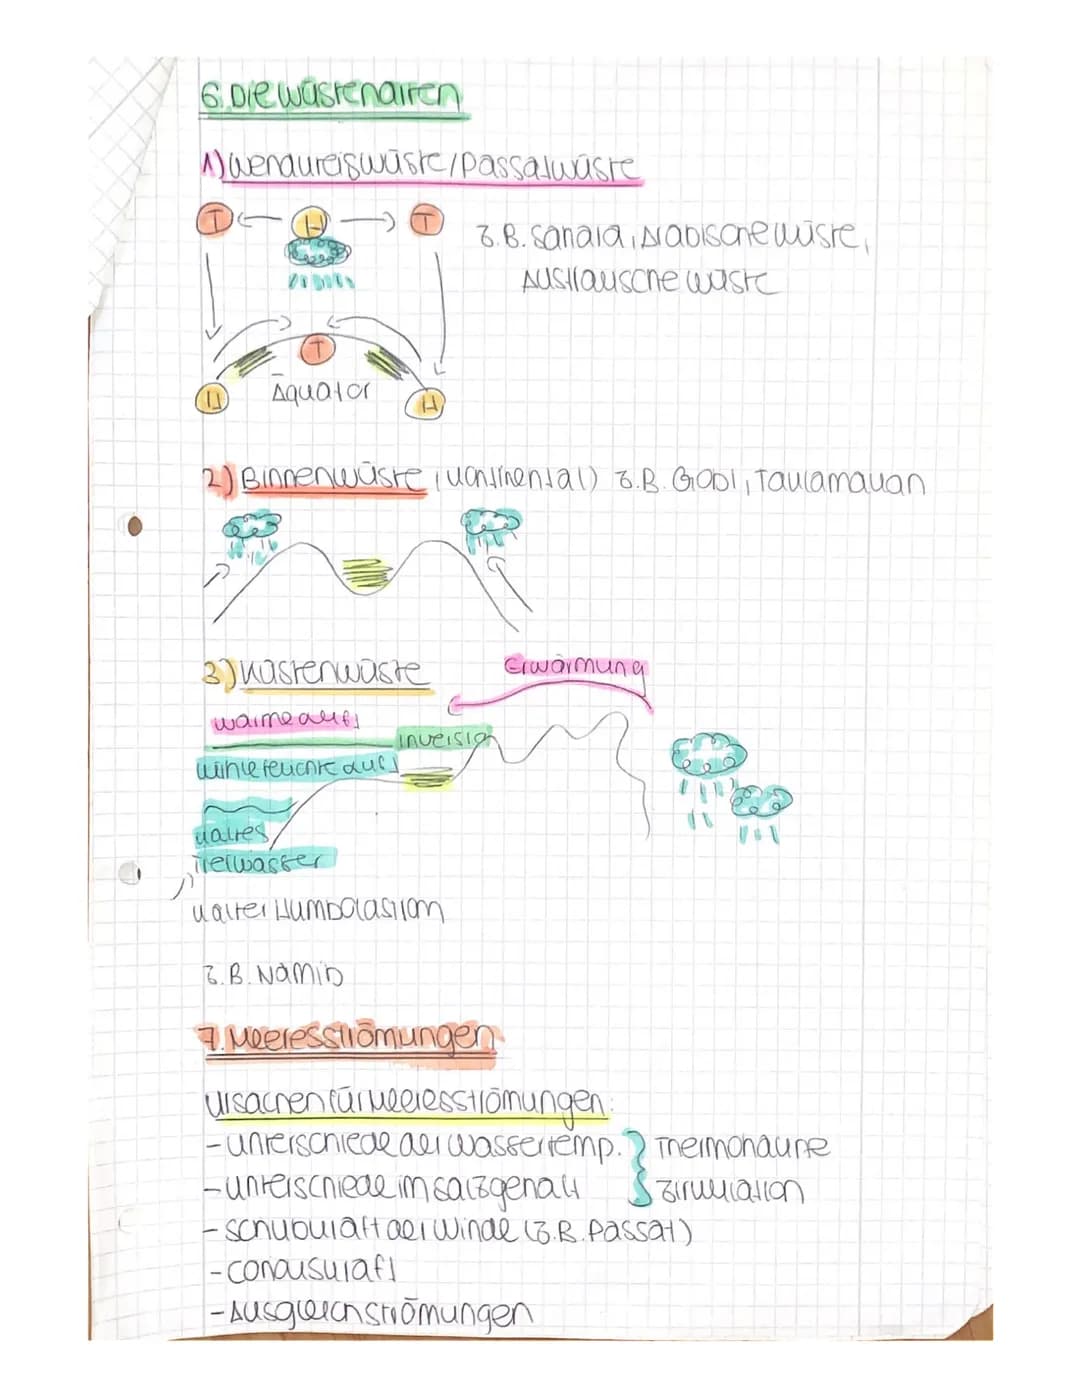 6. Die Wüstenarten
1) Wendekreiswüste / Passatwüste
T H T
z.B. Sahara, Arabische Wüste,
Australische Wüste
T
H Äquator H
2) Binnenwüste (kontinental) z.B. Gobi, Taklamakan
3) Küstenwüste
Erwärmung
warme Luft
Inversion
kühle feuchte Luft
kaltes
Tiefwasser
kalter Humboldstrom
z.B. Namib
7. Meeresströmungen
Ursachen für Meeresströmungen:
- Unterschiede der Wassertemp. } Thermohaline
- Unterschiede im Salzgehalt Zirkulation
- Schubkraft der Winde (z.B. Passat)
- Corioliskraft
- Ausgleichströmungen